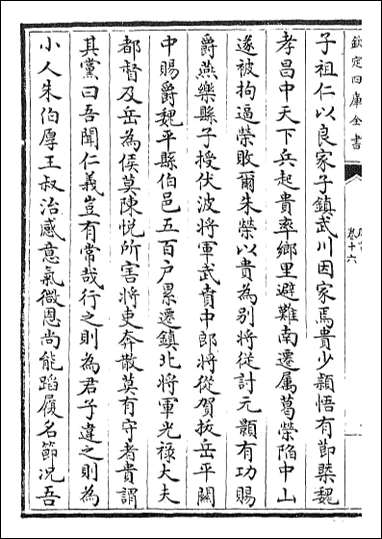 欽定四庫全書
卷十六
子祖仁以良家子鎮武川因家焉貴少穎悟有節槩魏
孝昌中天下兵起貴率鄉里避難南遷属葛榮陷中山
遂被拘逼榮敗爾朱榮以貴為别將從討元顥有功賜
爵燕樂縣子授伏波將軍武賁中郎將從賀拔岳平關
中賜爵魏平縣伯邑五百户累遷鎮北將軍光祿大夫
都督及岳為侯莫陳悦所害將吏奔散莫有守者貴謂
其黨曰吾聞仁義豈有常哉行之則為君子違之則為
小人朱伯厚王叔治感意氣微恩尚能蹈履名節况吾